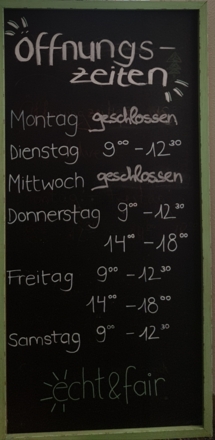 Öffnungs-
zeiten
Montag geschlossen
Dienstag 9⁰⁰ - 12³⁰
Mittwoch geschlossen
Donnerstag 9⁰⁰ - 12³⁰
14⁰⁰ - 18⁰⁰
Freitag 9⁰⁰ - 12³⁰
14⁰⁰ - 18⁰⁰
Samstag 9⁰⁰ - 12³⁰
echt&fair